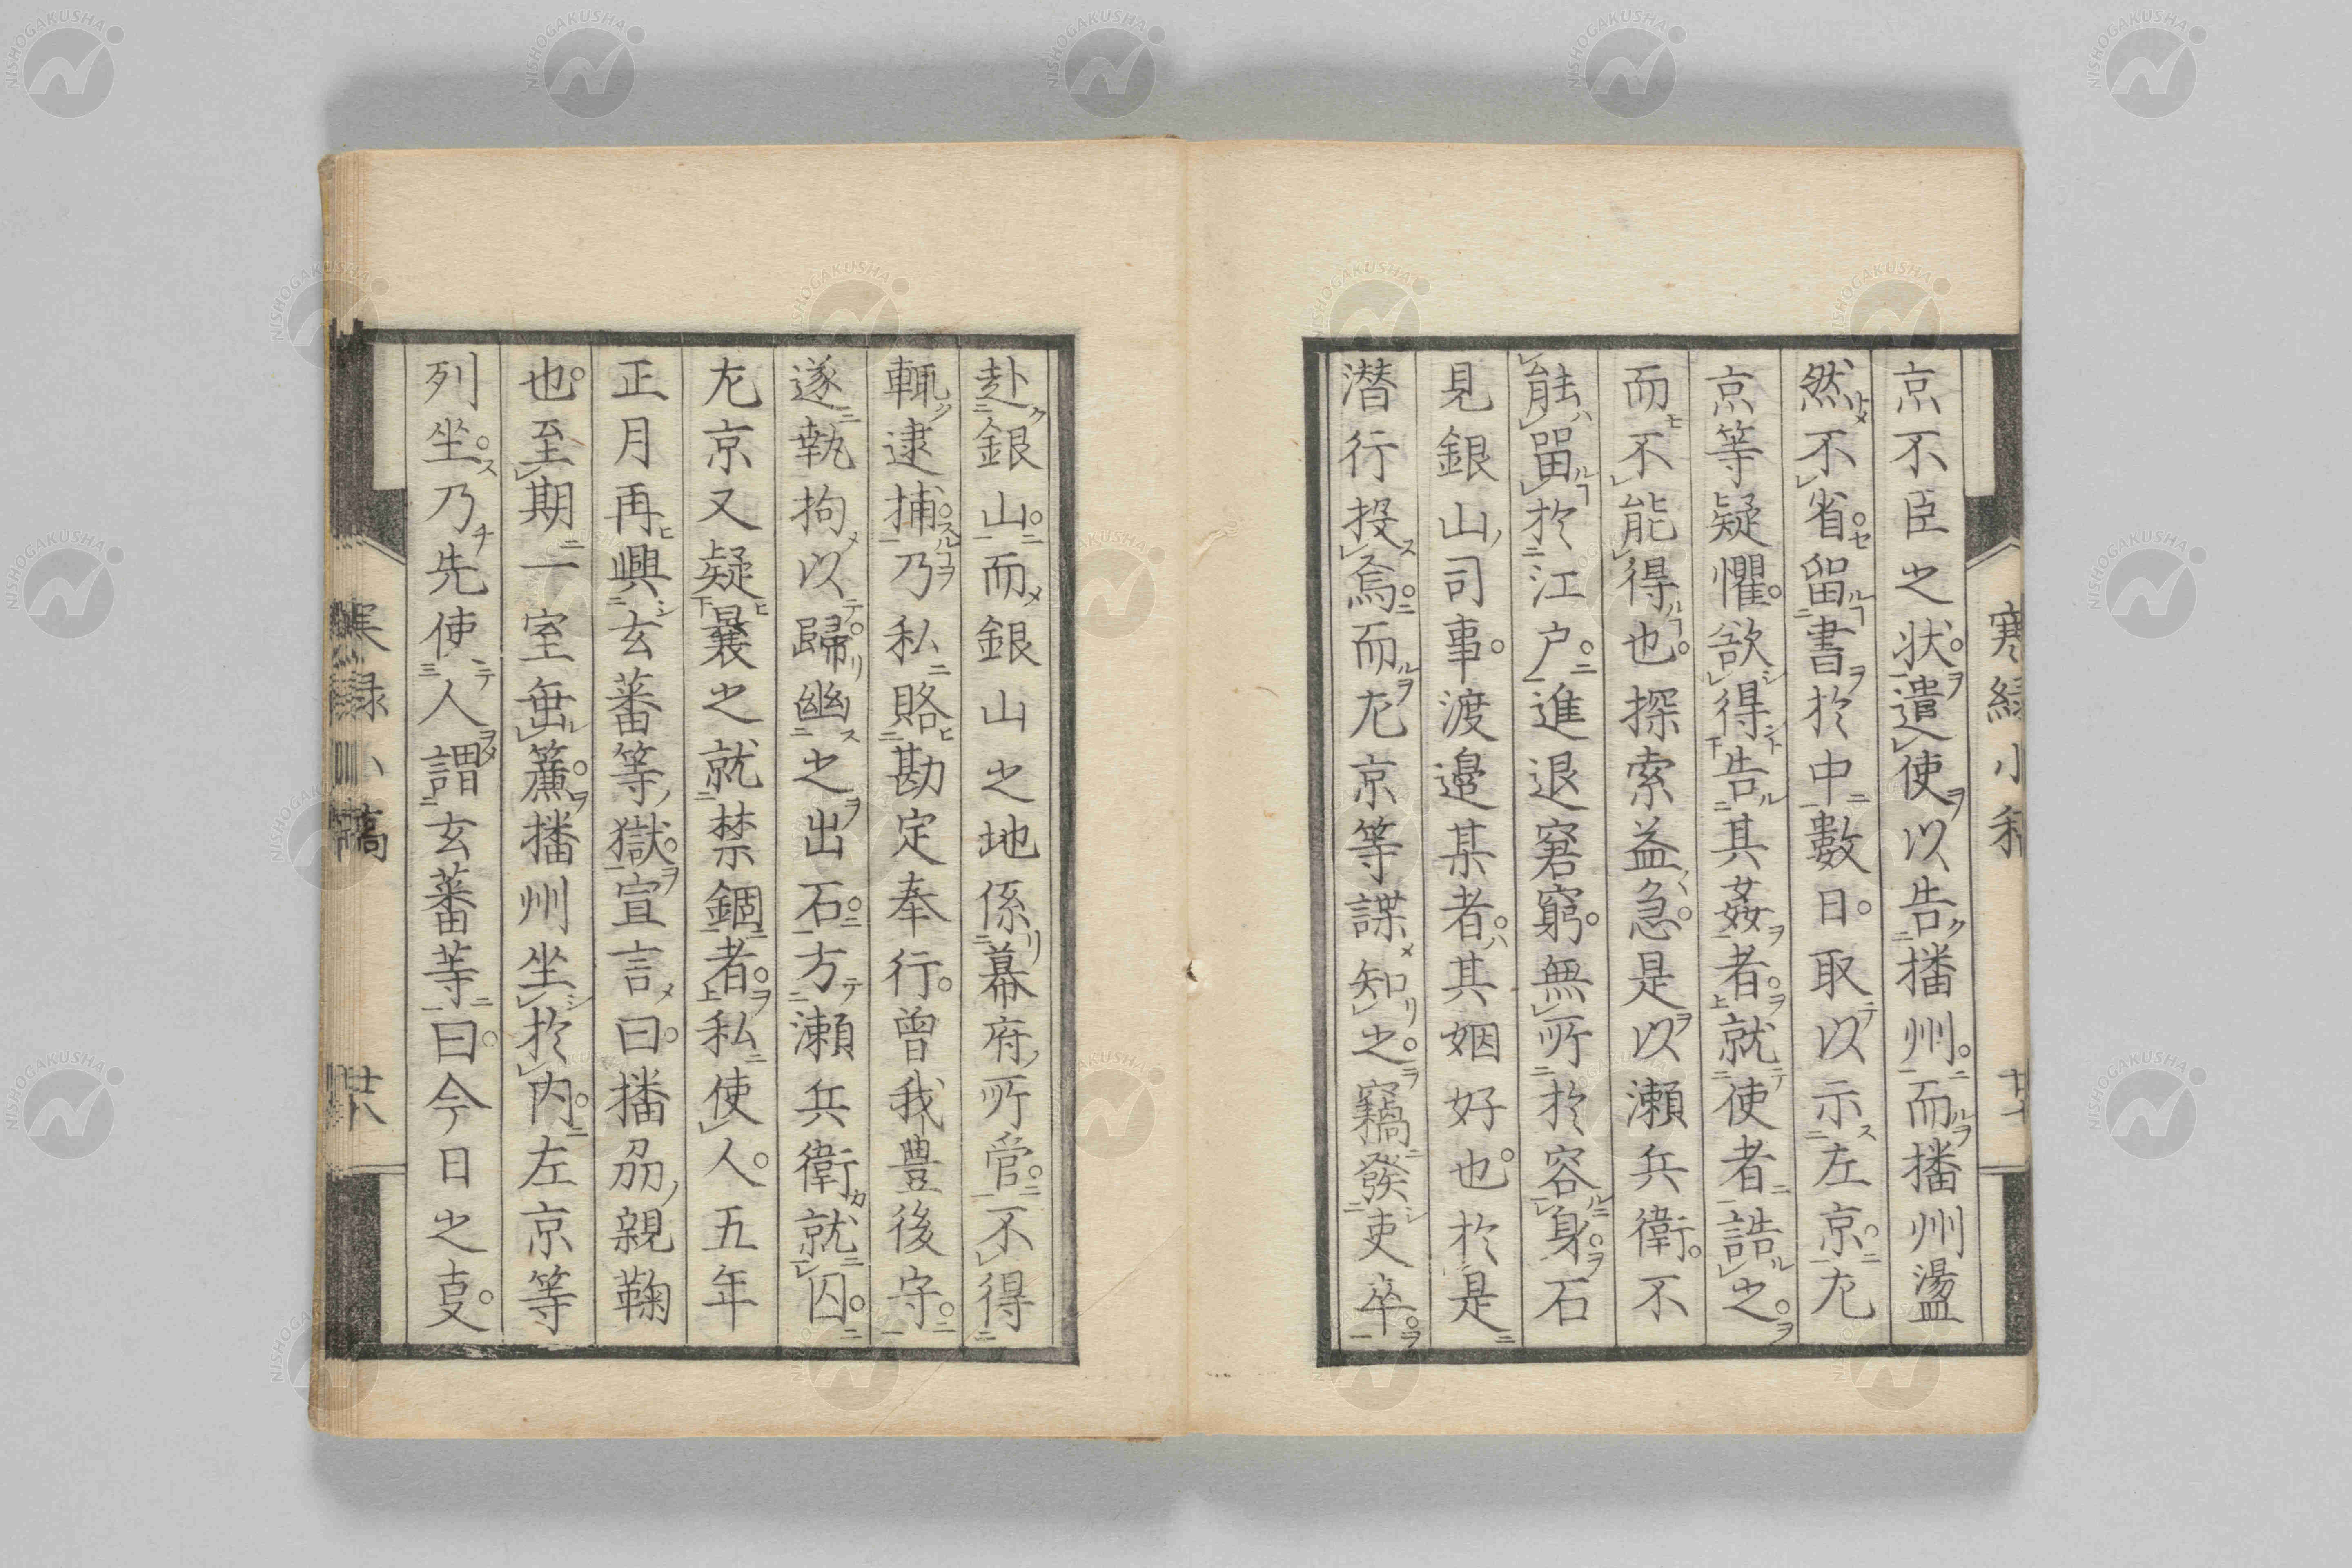 京不臣之状。遣使以告播州。而播州盪
然不省。留書於中數日。取以示左京。左
京等疑懼。欲得告其姦者。就使者誥之。
而不能得也。探索益急。是以瀬兵衛。不
能留於江戸。進退窘窮。無所於容身。石
見銀山司事。渡邉某者。其姻好也。於是
潜行投焉。而左京等諜知之。竊發吏卒。
赴銀山。而銀山之地係幕府所管。不得
輙逮捕。乃私賂勘定奉行。曽我豊後守。
遂執拘以歸。幽之出石。方瀬兵衛就囚。
左京又疑曩之就禁錮者。私使人。五年
正月再興玄蕃等獄。宣言曰。播刕親鞠
也。至期一室垂簾。播州坐於内。左京等
列坐。乃先使人謂玄蕃等曰。今日之㕝。
寒緑小稿
廿八
NISHOGAKUSHA